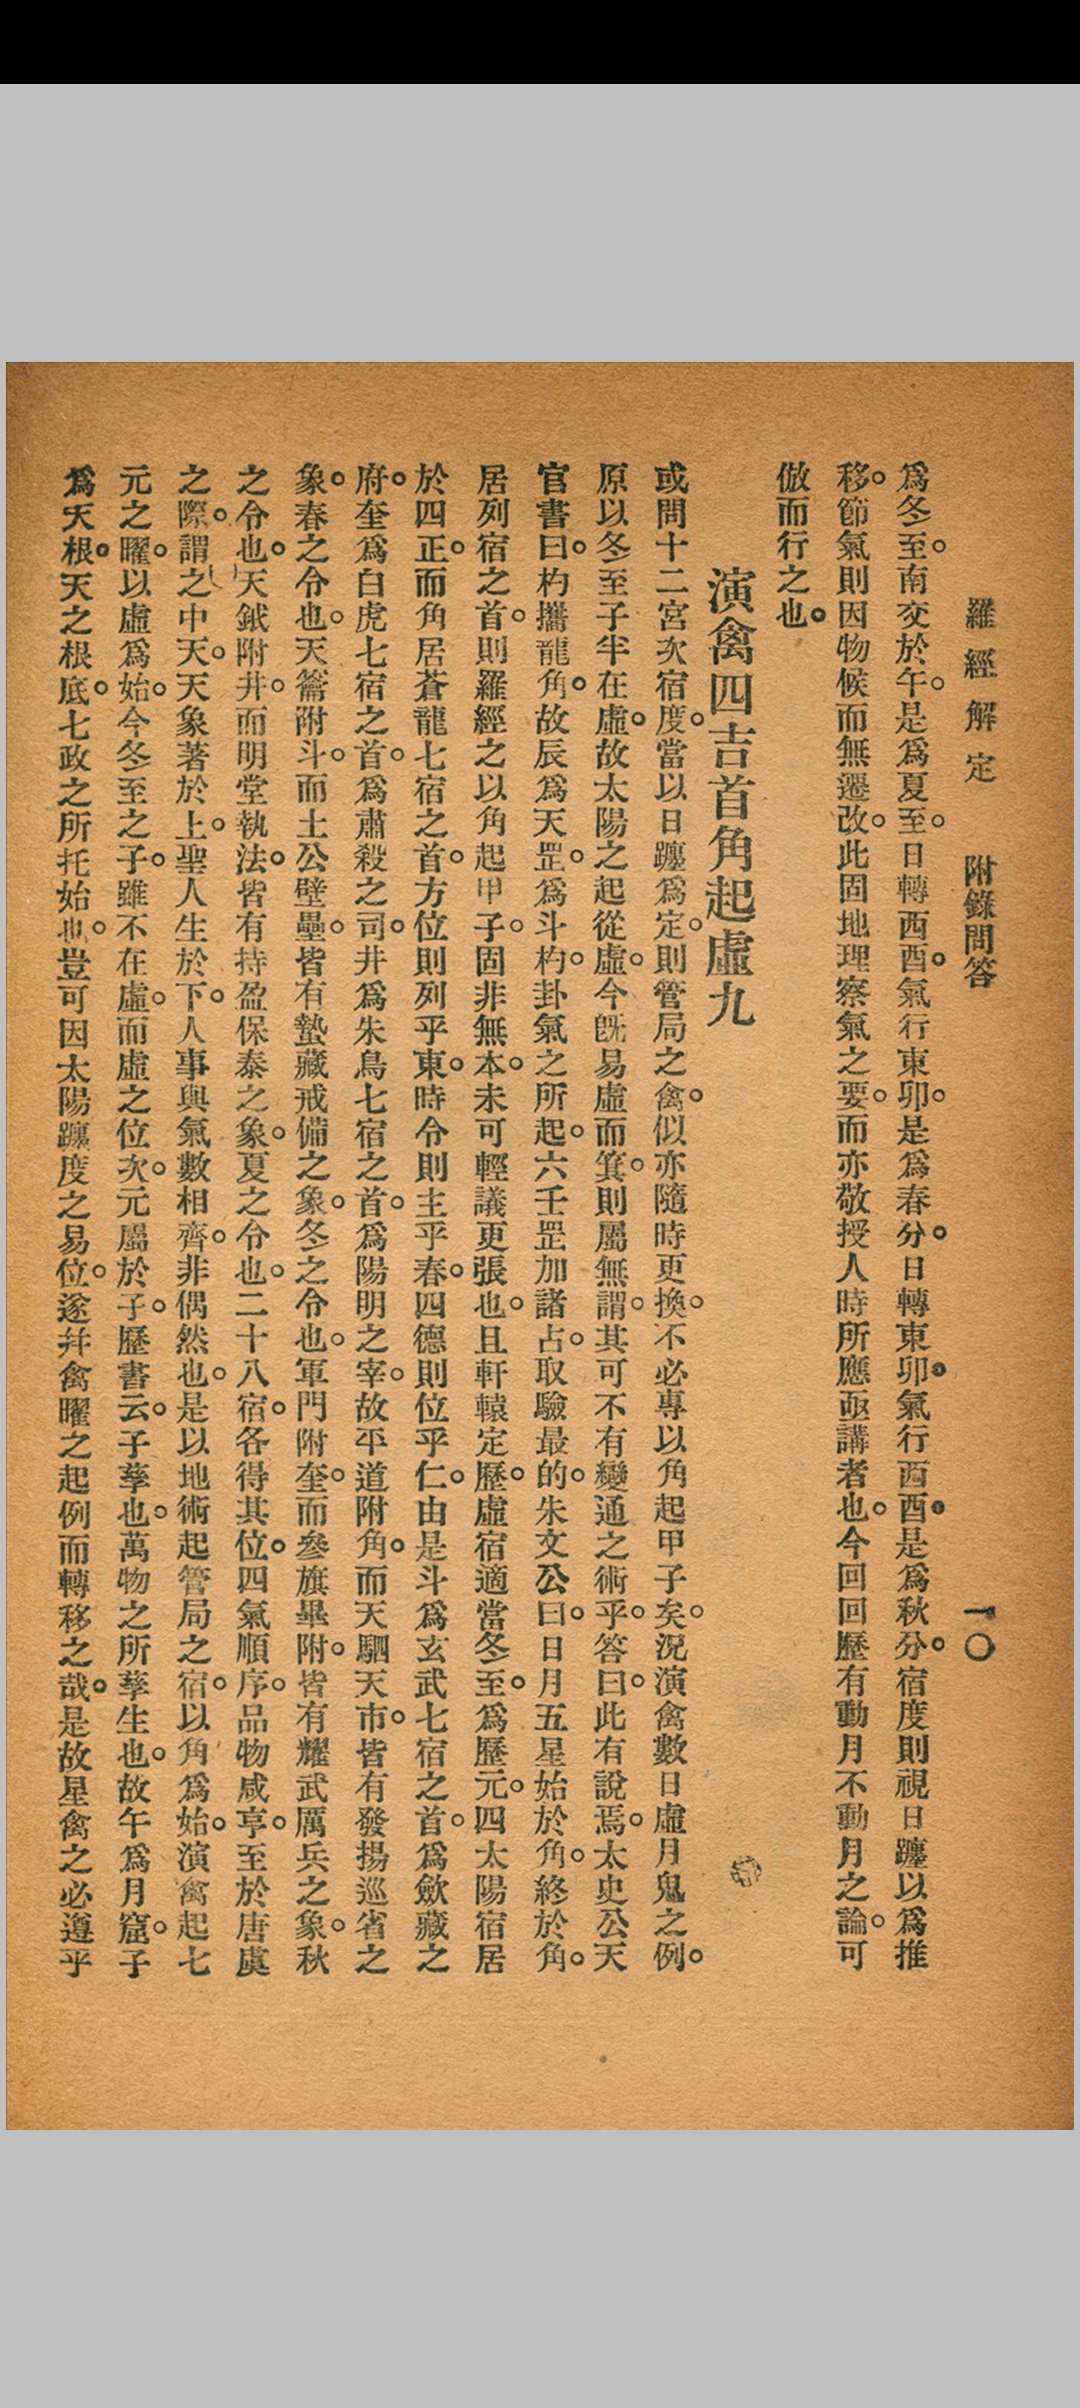 羅經解定　附錄問答　一〇
爲冬至。南交於午。是爲夏至。日轉西酉。氣行東卯。是爲春分。日轉東卯。氣行酉酉。是爲秋分。宿度則視日躔以爲推
移。節氣則因物候而無遷改。此固地理察氣之要。而亦敬授人時所應亟講者也。今回回歷有動月不動月之論。可
倣而行之也。
演禽四吉首角起虛九
或問十二宮次宿度。當以日躔爲定。則管局之禽。似亦隨時更換。不必專以角起甲子矣。況演禽數日虛月鬼之例。
原以冬至子半在虛。故太陽之起從虛。今旣易虛而箕。則屬無謂。其可不有變通之術乎。答曰。此有說焉。太史公天
官書曰。杓攜龍角。故辰爲天罡。爲斗杓。卦氣之所起。六壬罡加諸占。取驗最的。朱文公曰。日月五星始於角。終於角。
居列宿之首。則羅經之以角起甲子。固非無本。未可輕議更張也。且軒轅定歷。虛宿適當冬至。爲歷元。四太陽宿居
於四正。而角居蒼龍七宿之首。方位則列乎東。時令則主乎春。四德則位乎仁。由是斗爲玄武七宿之首。爲斂藏之
府。奎爲白虎七宿之首。爲肅殺之司。井爲朱鳥七宿之首。爲陽明之宰。故平道附角。而天駟天市。皆有發揚巡省之
象。春之令也。天籥附斗。而土公壁壘。皆有蟄藏戒備之象。冬之令也。軍門附奎。而參旗畢附。皆有耀武厲兵之象。秋
之令也。天鉞附井。而明堂執法。皆有持盈保泰之象。夏之令也。二十八宿。各得其位。四氣順序。品物咸亨。至於唐虞
之際。謂之中天。天象著於上。聖人生於下。人事與氣數相齊。非偶然也。是以地術起管局之宿。以角爲始。演禽起七
元之曜。以虛爲始。今冬至之子。雖不在虛。而虛之位次。元屬於子。歷書云。子孳也。萬物之所孳生也。故午爲月窟。子
爲天根。天之根底。七政之所托始也。豈可因太陽躔度之易位。遂幷禽曜之起例而轉移之哉。是故星禽之必遵乎